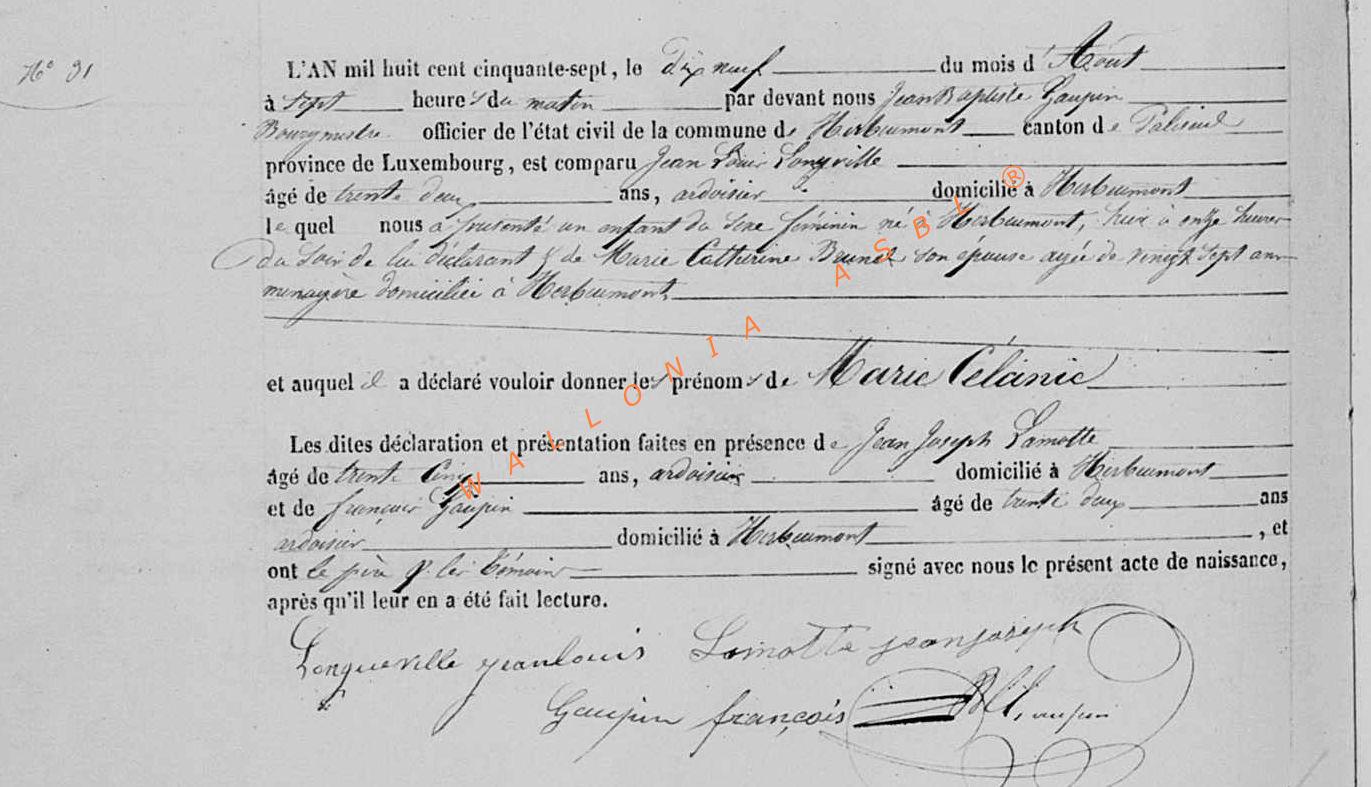 N° 31
L'AN mil huit cent cinquante-sept, le Dix neuf du mois d'Août
à Sept heures du matin par devant nous Jean Baptiste Gaupin
Bourgmestre officier de l'état civil de la commune de Herbeumont canton de Paliseul
province de Luxembourg, est comparu Jean Louis Longville
âgé de trente deux ans, ardoisier domicilié à Herbeumont
le quel nous a présenté un enfant du sexe féminin né à Herbeumont, hier à onze heures
du Soir de lui déclarant & de Marie Catherine Brunet son épouse agée de vingt Sept ans
menagère domiciliée à Herbeumont
et auquel il a déclaré vouloir donner les prénoms de Marie Célanie
Les dites déclaration et présentation faites en présence de Jean Joseph Lamotte
âgé de trente Cinq ans, ardoisier domicilié à Herbeumont
et de françois Gaupin âgé de trente deux ans
ardoisier domicilié à Herbeumont, et
ont le père & les témoins signé avec nous le présent acte de naissance,
après qu'il leur en a été fait lecture.
Longueville jeanlouis Lamotte jeanjoseph
Gaupin françois
WALLONIA ASBL ®